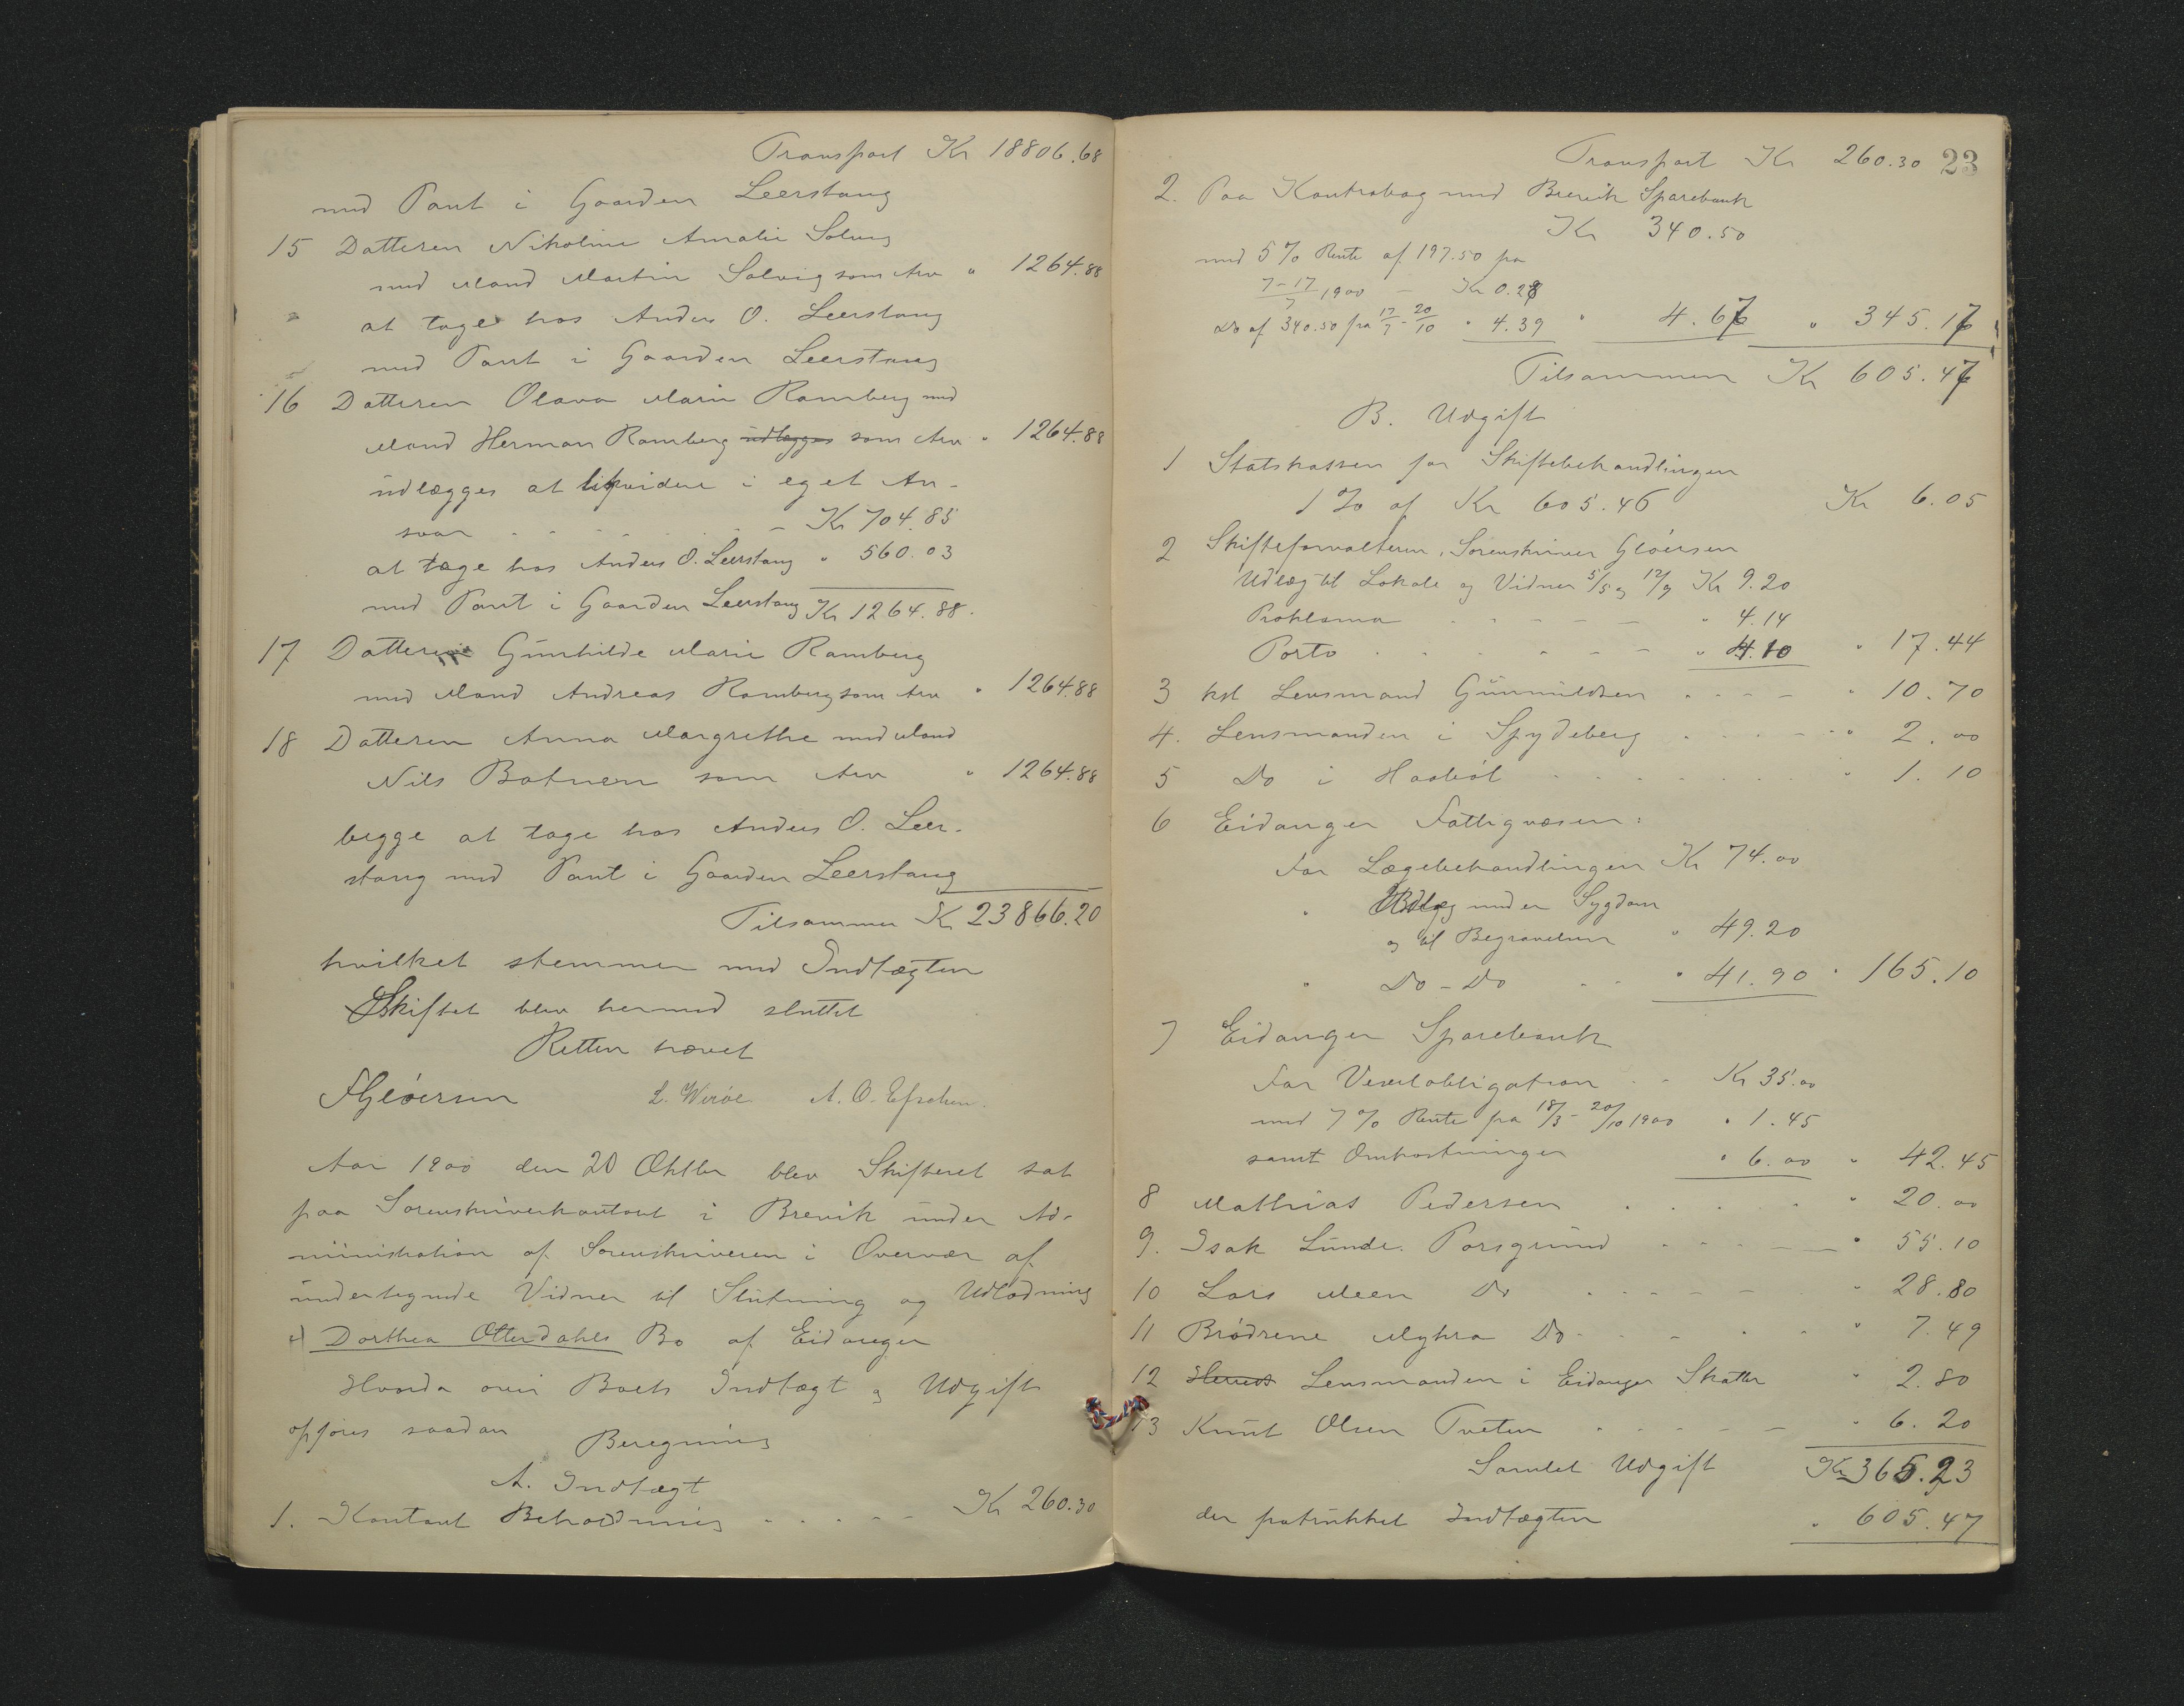 Transport Kr 18806.68
med Pant i Gaarden Leerstang
15 Datteren Nikoline Amalie Solvig
med Mand Martin Solvig som Arv " 1264.88
at tage hos Anders O. Leerstang
med Pant i Gaarden Leerstang
16 Datteren Olava Marie Ramberg med
Mand Herman Ramberg udlægges som Arv " 1264.88
udlægges at likvidere i eget An-
svar - Kr 704.85
at tage hos Anders O. Leerstang " 560.03
med Pant i Gaarden Leerstang Kr 1264.88.
17 Datteren Gunhilde Marie Ramberg
med Mand Andreas Ramberg som Arv " 1264.88
18 Datteren Anna Margrethe med Mand
Nils Botnen som Arv " 1264.88
begge at tage hos Anders O. Leer-
stang med Pant i Gaarden Leerstang
Tilsammen Kr 23866.20
hvilket stemmer med Indtægten
Skiftet blev hermed sluttet
Retten hævet
FGlöersen L. Weröe A. O.
Aar 1900 den 20 Oktbr blev Skifteret sat
paa Sorenskriverkontoret i Brevik under Ad-
ministration af Sorenskriveren i Overvær af
undertegnede Vidner til Slutning og Udlodning
i Dorthea Otterdahls Bo af Eidanger
Hvorda over Boets Indtægt og Udgift
opføres saadan Beregning
A. Indtægt
1. Kontant Beholdning - - - - - Kr 260.30
Transport Kr 260.30 23
2. Paa Kontrabog med Brevik Sparebank
Kr 340.50
med 5 % Rente af 197.50 fra
7-17/7 1900 - Kr 0.28
Do af 340.50 fra 17/7 - 20/10 " 4.39 " 4.67 " 345.17
Tilsammen Kr 605.47
B. Udgift
1 Statskassen for Skiftebehandlingen
1 % af Kr 605.46 Kr 6.05
2 Skifteforvalteren, Sorenskriver Glöersen
Udlæg til Lokale og Vidner 5/5 og 12/9 Kr 9.20
Proklama - - - - " 4.14
Porto - - - - " 4.10 " 17.44
3 kst Lensmand Gunnuldsen - - - - " 10.70
4. Lensmanden i Spydeberg - - - - " 2.00
5 Do i Haabøl - - - - " 1.10
6 Eidanger Fattigvæsen:
For Lægebehandlingen Kr 74.00
" Udlæg under Sygdom
og til Begravelsen " 49.20
" Do - Do - - " 41.90 " 165.10
7 Eidanger Sparebank
For Vexelobligation - - Kr 35.00
med 7 % Rente fra 18/3 - 20/10 1900 " 1.45
samt Omkostninger " 6.00 " 42.45
8 Mathias Pedersen - - - - " 20.00
9. Isak Lunde. Porsgrund - - - - " 55.10
10 Lars Meen Do - - - - " 28.80
11 Brødrene Myhra Do - - - - " 7.49
12 Herreds Lensmanden i Eidanger Skatter " 2.80
13 Knut Olsen Tveten - - - - " 6.20
Samlet Udgift Kr 365.23
der fratrukket Indtægten " 605.47